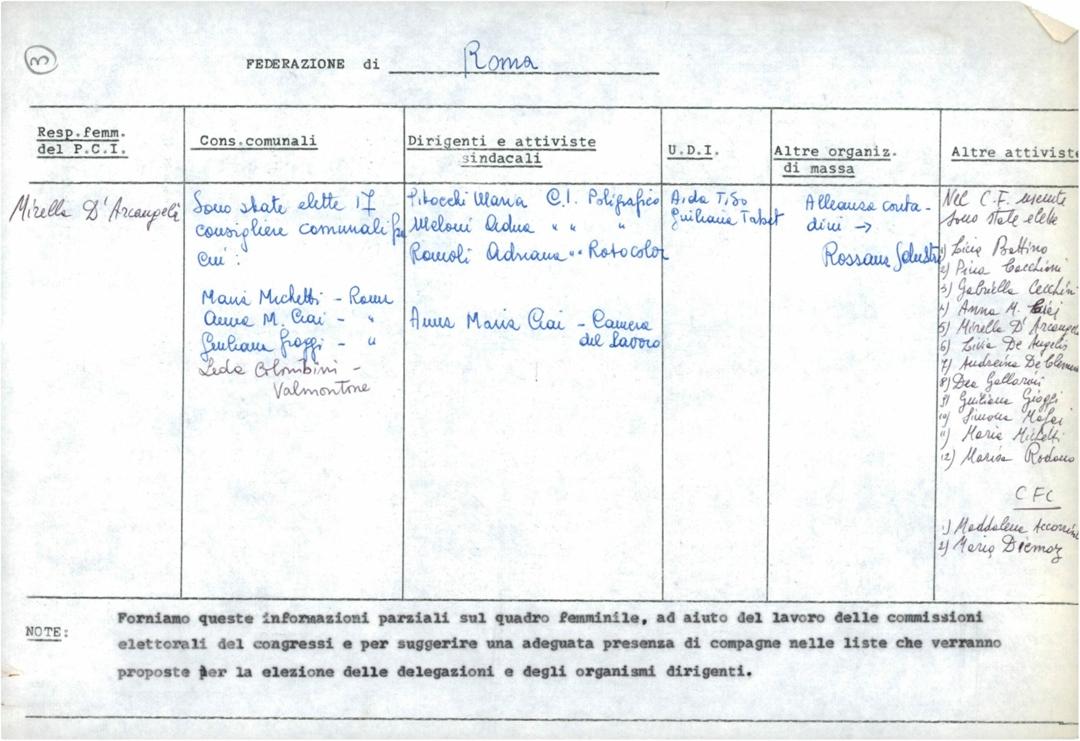 3
FEDERAZIONE di Roma
Resp.femm.
del P.C.I.
Mirella D'Arcangeli
Cons.comunali
Sono state elette 17
consigliere comunali fra
cui:
Maria Michetti - Roma
Anna M. Ciai - "
Giuliana Gioggi - "
Leda Colombini -
Valmontone
Dirigenti e attiviste
sindacali
Pitocchi Maria C.I. Poligrafico
Meloni Adua " " "
Romoli Adriana " " Rotocolor
Anna Maria Ciai - Camera
del Lavoro
U.D.I.
Aida Tiso
Giuliana Tabet
Altre organiz.
di massa
Alleanza conta-
dini →
Rossana
Altre attiviste
Nel C.F. uscente
sono state elette
1) Licia
2) Pina
3) Gabriella Cecchini
4) Anna M. Ciai
5) Mirella D'Arcangeli
6) Livia De Angelis
7) Andreina De
8) Dea Gallaroni
9) Giuliana Gioggi
10) Simona Mafai
11) Maria Michetti
12) Marisa Rodano
CFC
1) Maddalena
2) Maria Diemoz
NOTE: Forniamo queste informazioni parziali sul quadro femminile, ad aiuto del lavoro delle commissioni
elettorali del congressi e per suggerire una adeguata presenza di compagne nelle liste che verranno
proposte per la elezione delle delegazioni e degli organismi dirigenti.